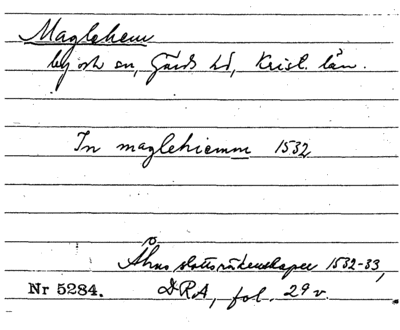 Maglehem
by och sn, Gärds hd, Krist. län.
In maglehiemm 1532
Åhus slottsräkenskaper 1532-33,
Nr 5284. DRA, fol. 29 v.